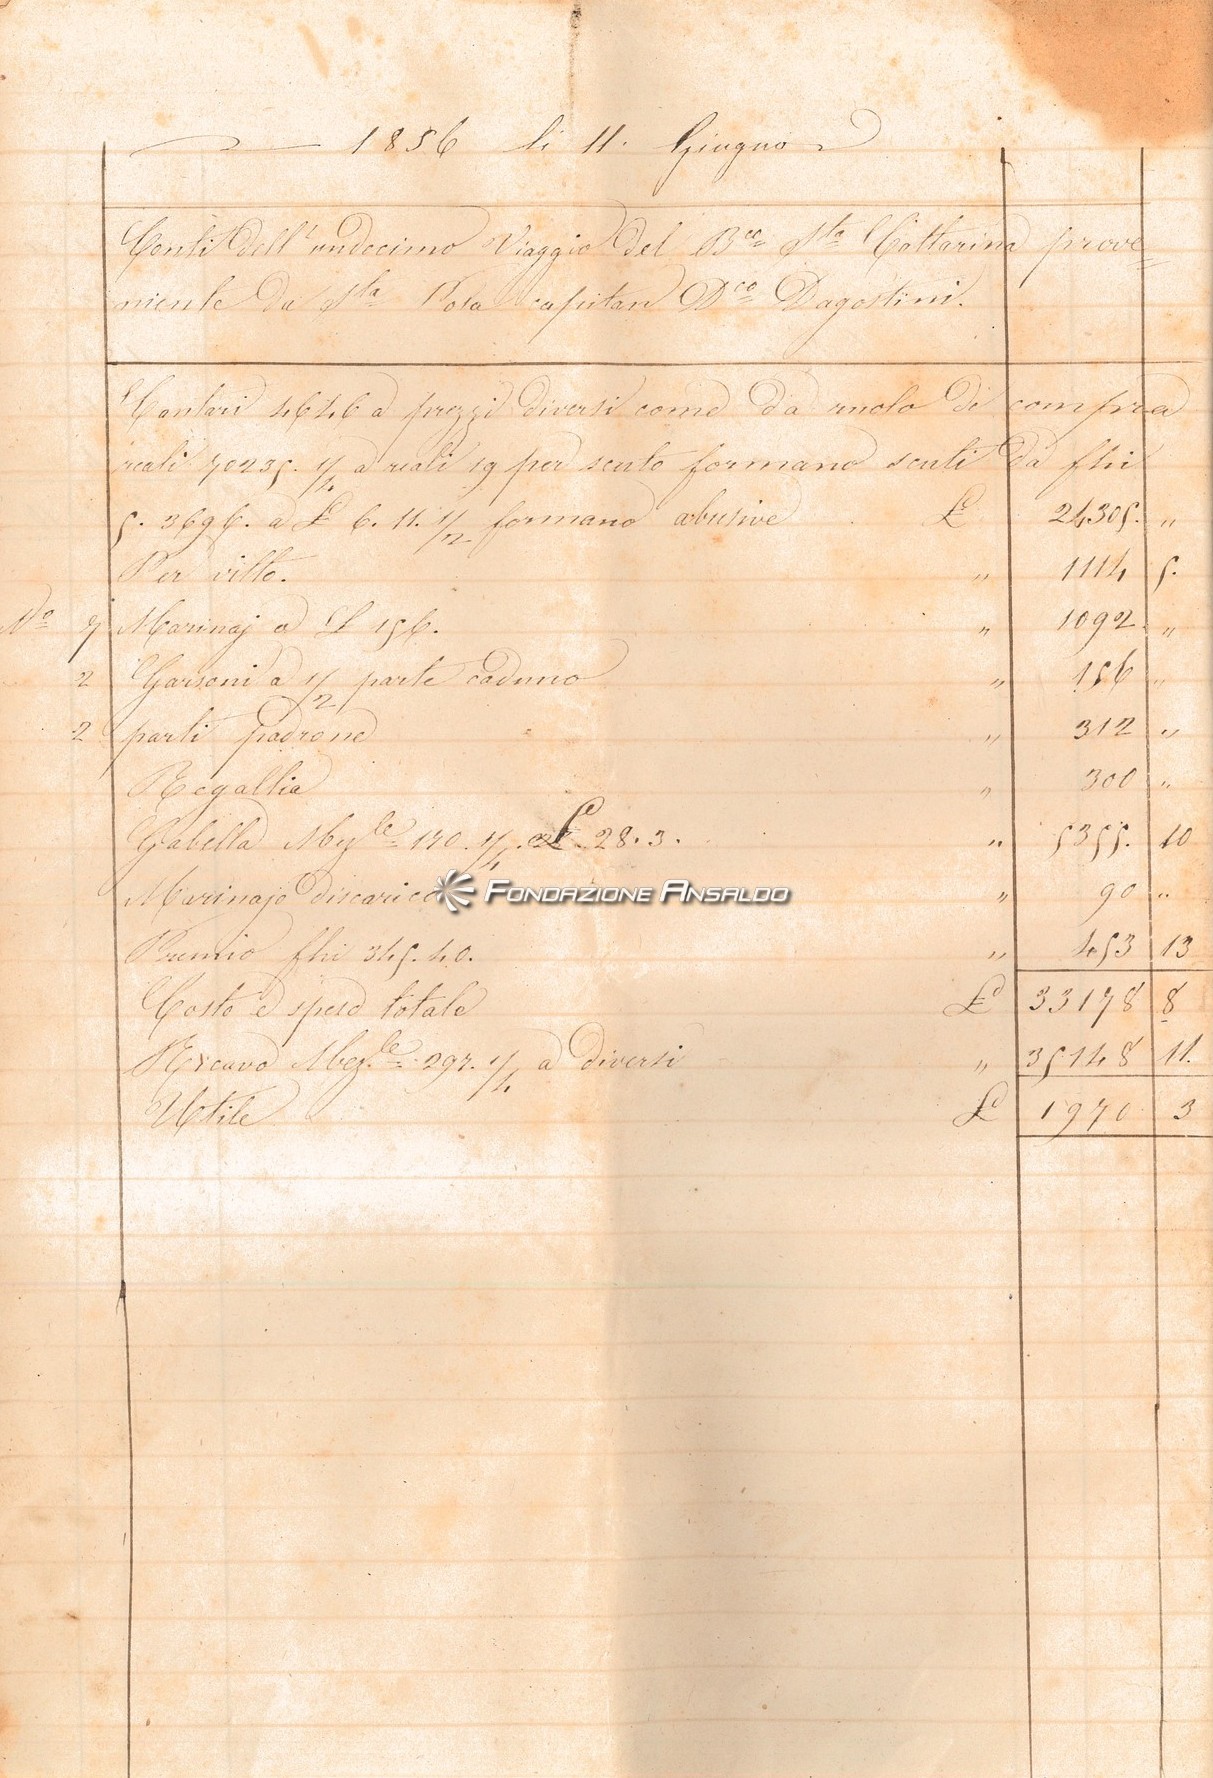 1856 li 11. Giugno
Conti dell'undecimo Viaggio del B.co S.ta Cattarina prove=
niente da S.ta Tosa capitan D.co Dagostini.
Cantari 4646 a prezzi diversi come da ruolo di compra
reali 70235. 1/4 a reali 19 per scuto formano scuti da fhi
5. 3696. a £ 6. 11. 1/2 formano abusive £ 24305. „
Per vitto. „ 1114 5.
N.o 7 Marinaj a £ 156. „ 1092 „
2 Garsoni a 1/2 parte caduno „ 156 „
2 parti padrone „ 312 „
Regallia „ 300 „
Gabella Mez.le 190. 1/4. a £ 28. 3. „ 5355. 10
Marinajo discarico „ 90 „
FONDAZIONE ANSALDO
Premio fhi 345. 40. „ 453 13
Costo e spese totale £ 33178 8
Ricavo Mez.le 297. 1/4 a diversi „ 35148 11.
Utile £ 1970 3